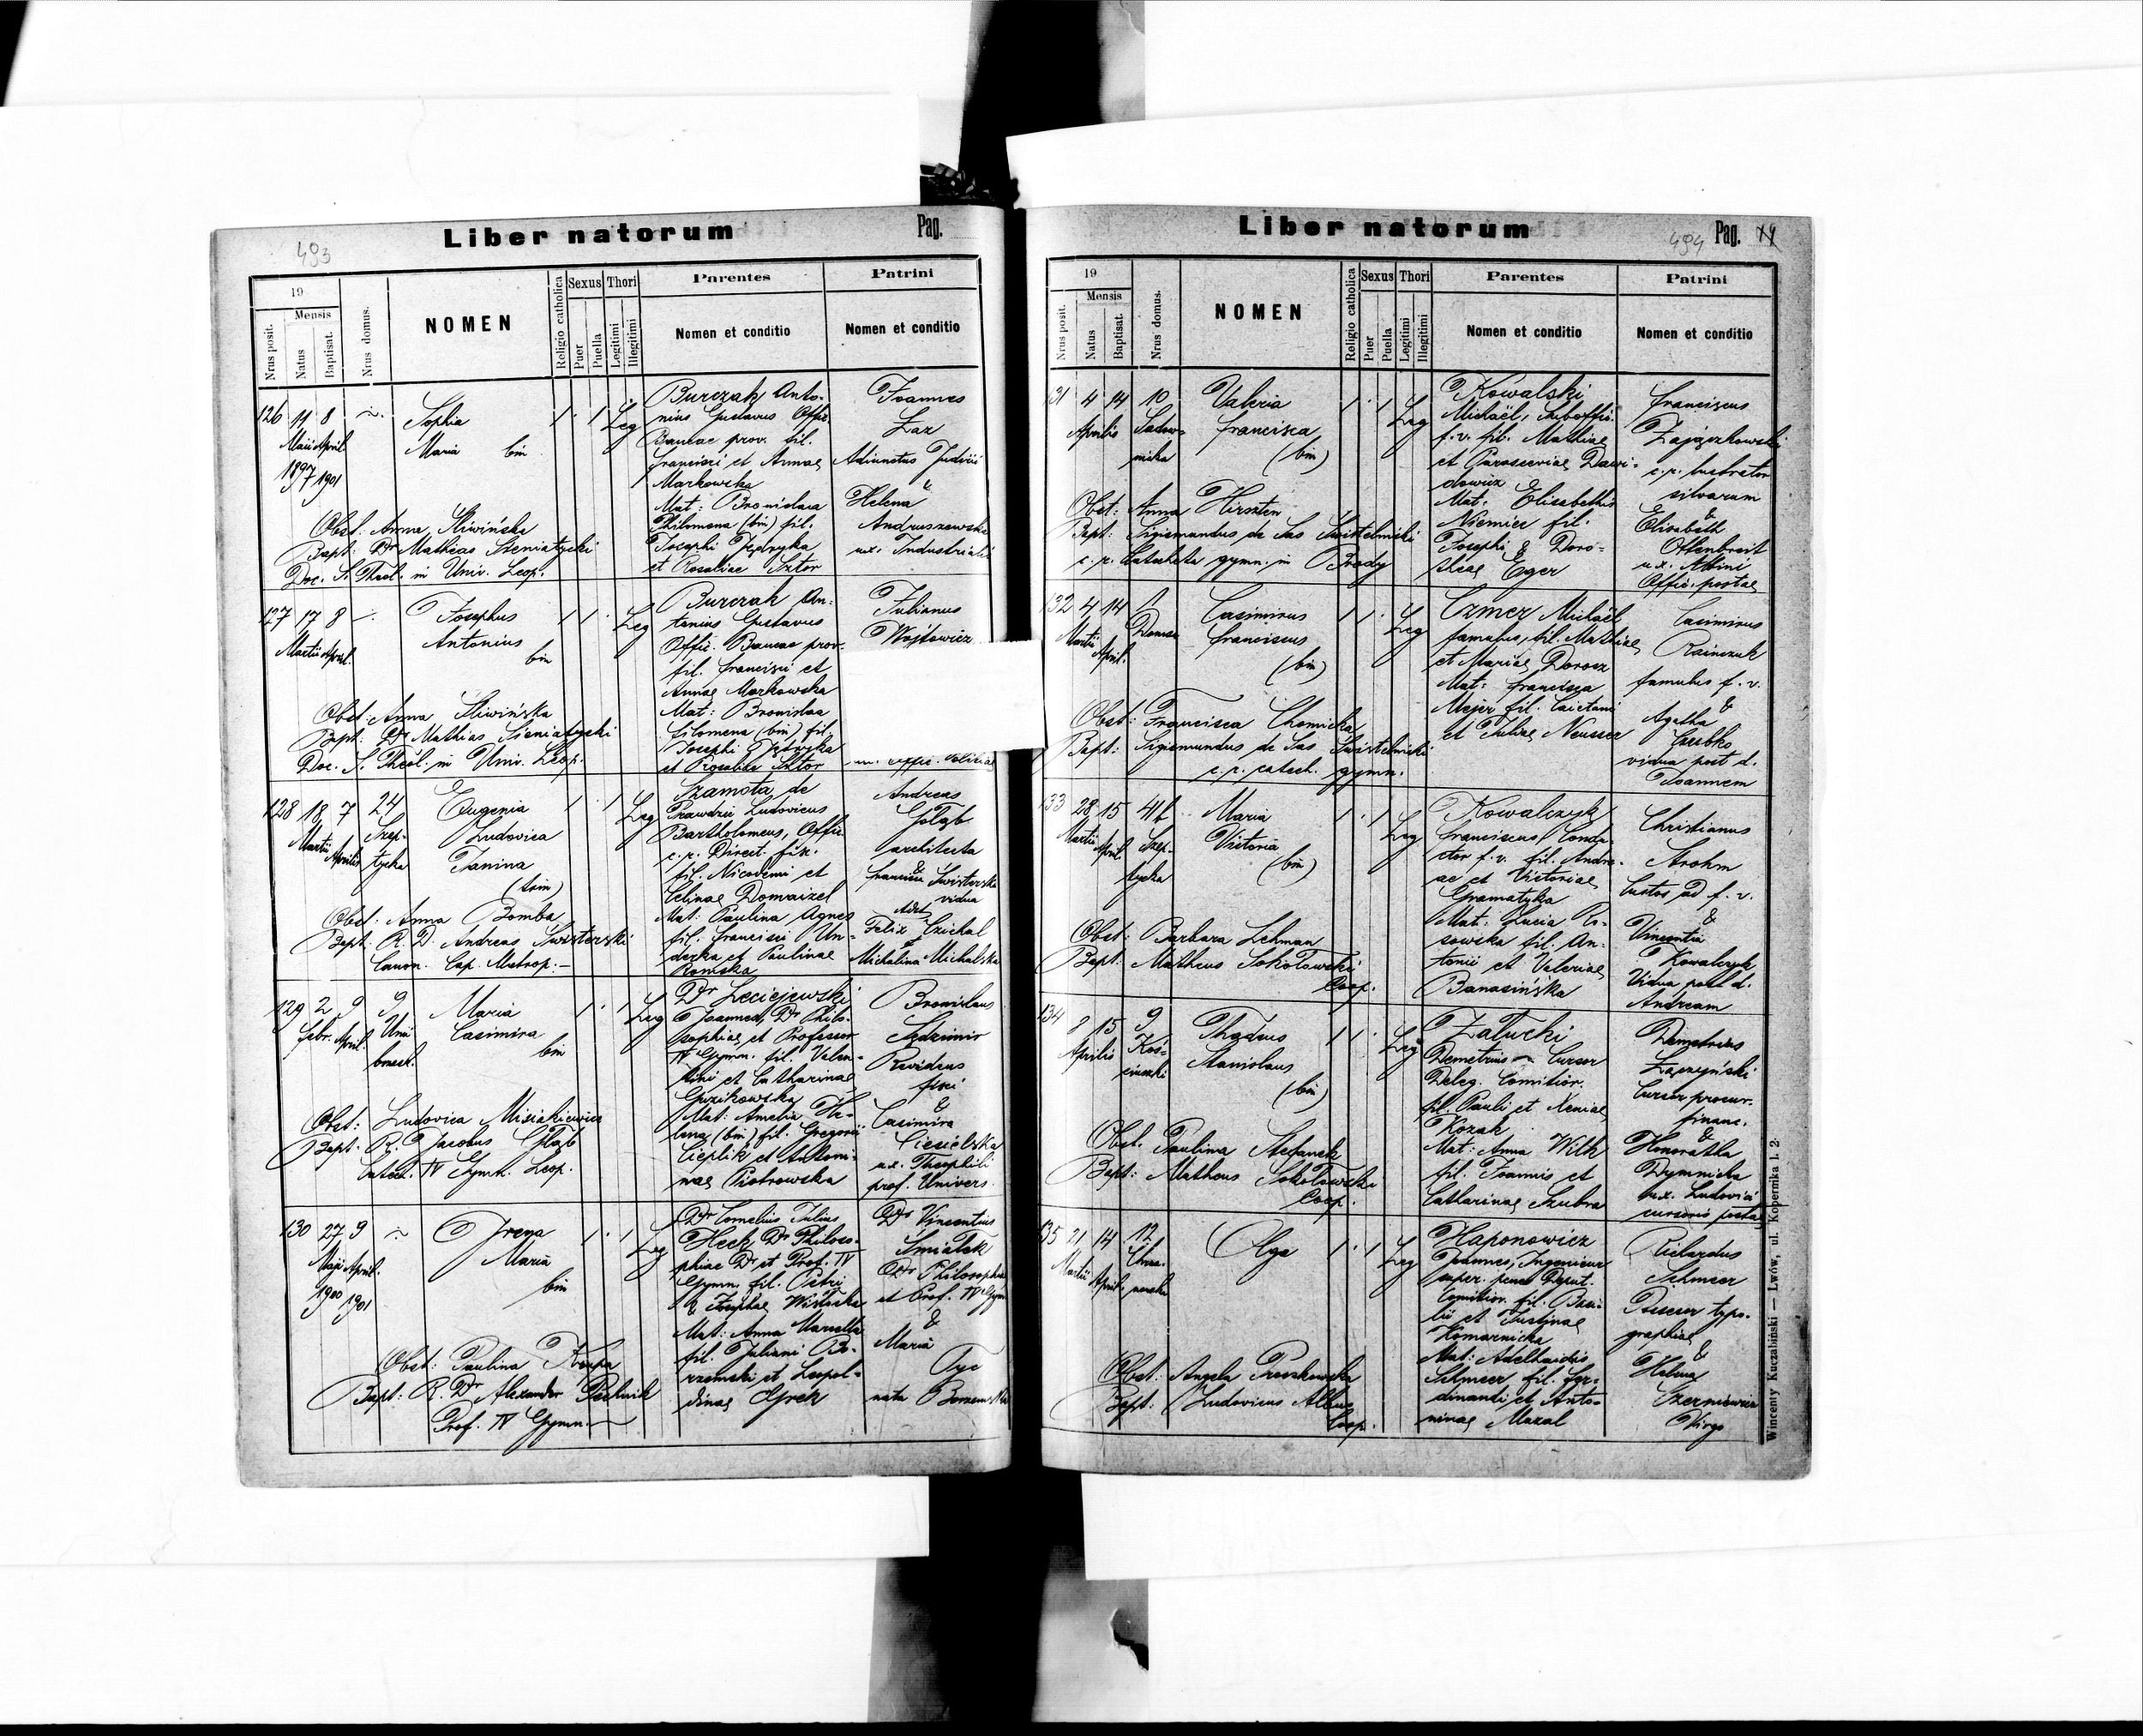 493
Liber natorum
Pag.
19
Mensis
Nrus posit.
Natus
Baptisat.
Nrus domus.
NOMEN
Religio catholica
Sexus
Puer
Puella
Thori
Legitimi
Illegitimi
Parentes
Nomen et conditio
Patrini
Nomen et conditio
126 11 8
Maii April.
1897 1901
Sophia
Maria bin
1 1 Leg
Burczak Anto-
nius Gustavus Offic.
Bancae prov. fil.
Francisci et Annae
Markowska
Mat: Bronislava
Philomena (bin) fil.
Josephi
et Rosaliae Sztor
Joannes
Laz
Adiunctus Judicii
&
Helena
Andruszewska
ux. Industrialis
Obst: Anna Śliwińska
Bapt: Dr Mathias Sieniatycki
Doc. S. Theol. in Univ. Leop.
127 17 8
Martii April.
Josephus
Antonius
bin
1 1 Leg
Burczak An-
tonius Gustavus
Offic. Bancae prov.
fil. Francisci et
Annae Markowska
Mat: Bronislaa
Filomena (bin) fil.
Josephi
et Rosaliae Sztor
Julianus
Wójtowicz
Obst: Anna Śliwińska
Bapt: Dr Mathias Sieniatycki
Doc. S. Theol. in Univ. Leop.
128 18 7 24
Martii Aprilis
Szep-
tycka
Eugenia
Ludovica
Janina
(trin)
1 1 Leg
Szamota de
Prawdzic Ludovicus
Bartholomeus, Offic.
c. r. Direct. fisc.
fil. Nicodemi et
Celinae Domaizel
Mat: Paulina Agnes
fil. Francisci Un-
derka et Paulinae
Romska
Andreas
Gołąb
architecta
&
Francisca Świsterska
vidua
Adst.
Felix Czichal
et
Michalina Michalska
Obst: Anna Bomba
Bapt: R. D. Andreas Świsterski
Canon. Cap. Metrop:—
129 2 9 9
Febr. April.
Maria
Casimira
bin
1 1 Leg
Dr Leciejewski
Joannes, Dr Philo-
sophiae et Professor
IV Gymn. fil. Valen-
tini et Catharinae
Guzikowska
Mat: Amelia He-
lena (bin) fil. Gregorii
Cieplik et Antoni-
nae Piotrowska
Bronislaus
Sędzimir
Revidens
fisci
&
Casimira
Ciesielska
ux. Theophili
prof. Univers.
Obst: Ludovica Misiakiewicz
Bapt: R. D. Jacobus Głąb
Catech. IV Gymn. Leop.
130 27 9
Maji April.
1900 1901
Irena
Maria
bin
1 1 Leg
Dr Cornelius Julius
Heck Dr Philoso-
phiae Dr et Prof. IV
Gymn. fil. Petri
& Josephae Wisłocka
Mat: Anna Marcella
fil. Juliani Bo-
rzemski et Leopol-
dinae Gjrek
Dr Vincentius
Śmiałek
Dr Philosophiae
et Prof. IV Gym
&
Maria
Tyc
nata Borzemska
Obst: Paulina Krupa
Bapt: R. Dr Alexander Pechnik
Prof. IV Gymn.
494
Liber natorum
Pag. 14
19
Mensis
Nrus posit.
Natus
Baptisat.
Nrus domus.
NOMEN
Religio catholica
Sexus
Puer
Puella
Thori
Legitimi
Illegitimi
Parentes
Nomen et conditio
Patrini
Nomen et conditio
31 4 14 10
Aprilis
Sadow-
nicka
Valeria
Francisca
(bin)
1 1 Leg
Kowalski
Michaël, Suboffic.
f. v. fil. Mathiae
et Parasceviae Dawi-
dowicz
Mat: Elisabethis
Niemiec fil.
Josephi & Doro-
theae Eger
Franciscus
Zajączkowski
c. r. lustrator
silvarum
&
Elisabeth
Ottenbreit
ux.
Offic. postae
Obst: Anna Hirszten
Bapt: Sigismundus de Sas Świstelnicki
c. r. Catecheta gymn. in Brody
132 4 14 1
Martii April.
Casimirus
Franciscus
(bin)
1 1 Leg
Czmer Michaël
famulus, fil. Mathiae
et Mariae Dorosz
Mat: Francisca
Mejer fil. Caietani
et Juliae Neusser
Casimirus
Rainczuk
famulus f. v.
&
Agatha
vidua post d.
Joannem
Obst: Francisca Chomicka
Bapt: Sigismundus de Sas Świstelnicki
c. r. catech. gymn.
133 28 15 41b
Martii April.
Szep-
tycka
Maria
Victoria
(bin)
1 1 Leg
Kowalczyk
Franciscus, Condu-
ctor f. v. fil. Andre-
ae et Victoriae
Gramatyka
Mat: Lucia Ko-
sowska fil. An-
tonii et Valeriae
Banasińska
Christianus
Strohm
Custos ad f. v.
&
Vincentia
Kowalczyk
Vidua post d.
Andream
Obst: Barbara Lehman
Bapt: Matheus Sokołowski
Coop.
134 8 15 9
Aprilis
Koś-
ciuszki
Thadeus
Stanislaus
(bin)
1 1 Leg
Załucki
Demetrius Cursor
Deleg. Comitior.
fil. Pauli et Xeniae
Kozak
Mat: Anna Wilk
fil. Joannis et
Catharinae Szubra
Demetrius
Łapczyński
Cursor procur.
financ.
&
Honoratha
Dymnicka
ux. Ludovici
cursoris postae
Obst. Paulina Stefanek
Bapt: Matheus Sokołowski
Coop.
135 21 14 12
Martii April.
Chrza-
nowska
Olga
1 1 Leg
Haponowicz
Joannes, Ingenieur
super. penes Deput.
Comitior. fil. Basi-
lii et Justinae
Komarnicka
Mat: Adelhaidis
Schmeer fil. Fer-
dinandi et Anto-
ninae Mazal
Richardus
Schmeer
Possessor typo-
graphiae
&
Helena
Czerniewicz
Virgo
Obst: Angela Proszkowska
Bapt: Ludovicus Albus
Coop.
Wincenty Kuczabiński — Lwów, ul. Kopernika l. 2.